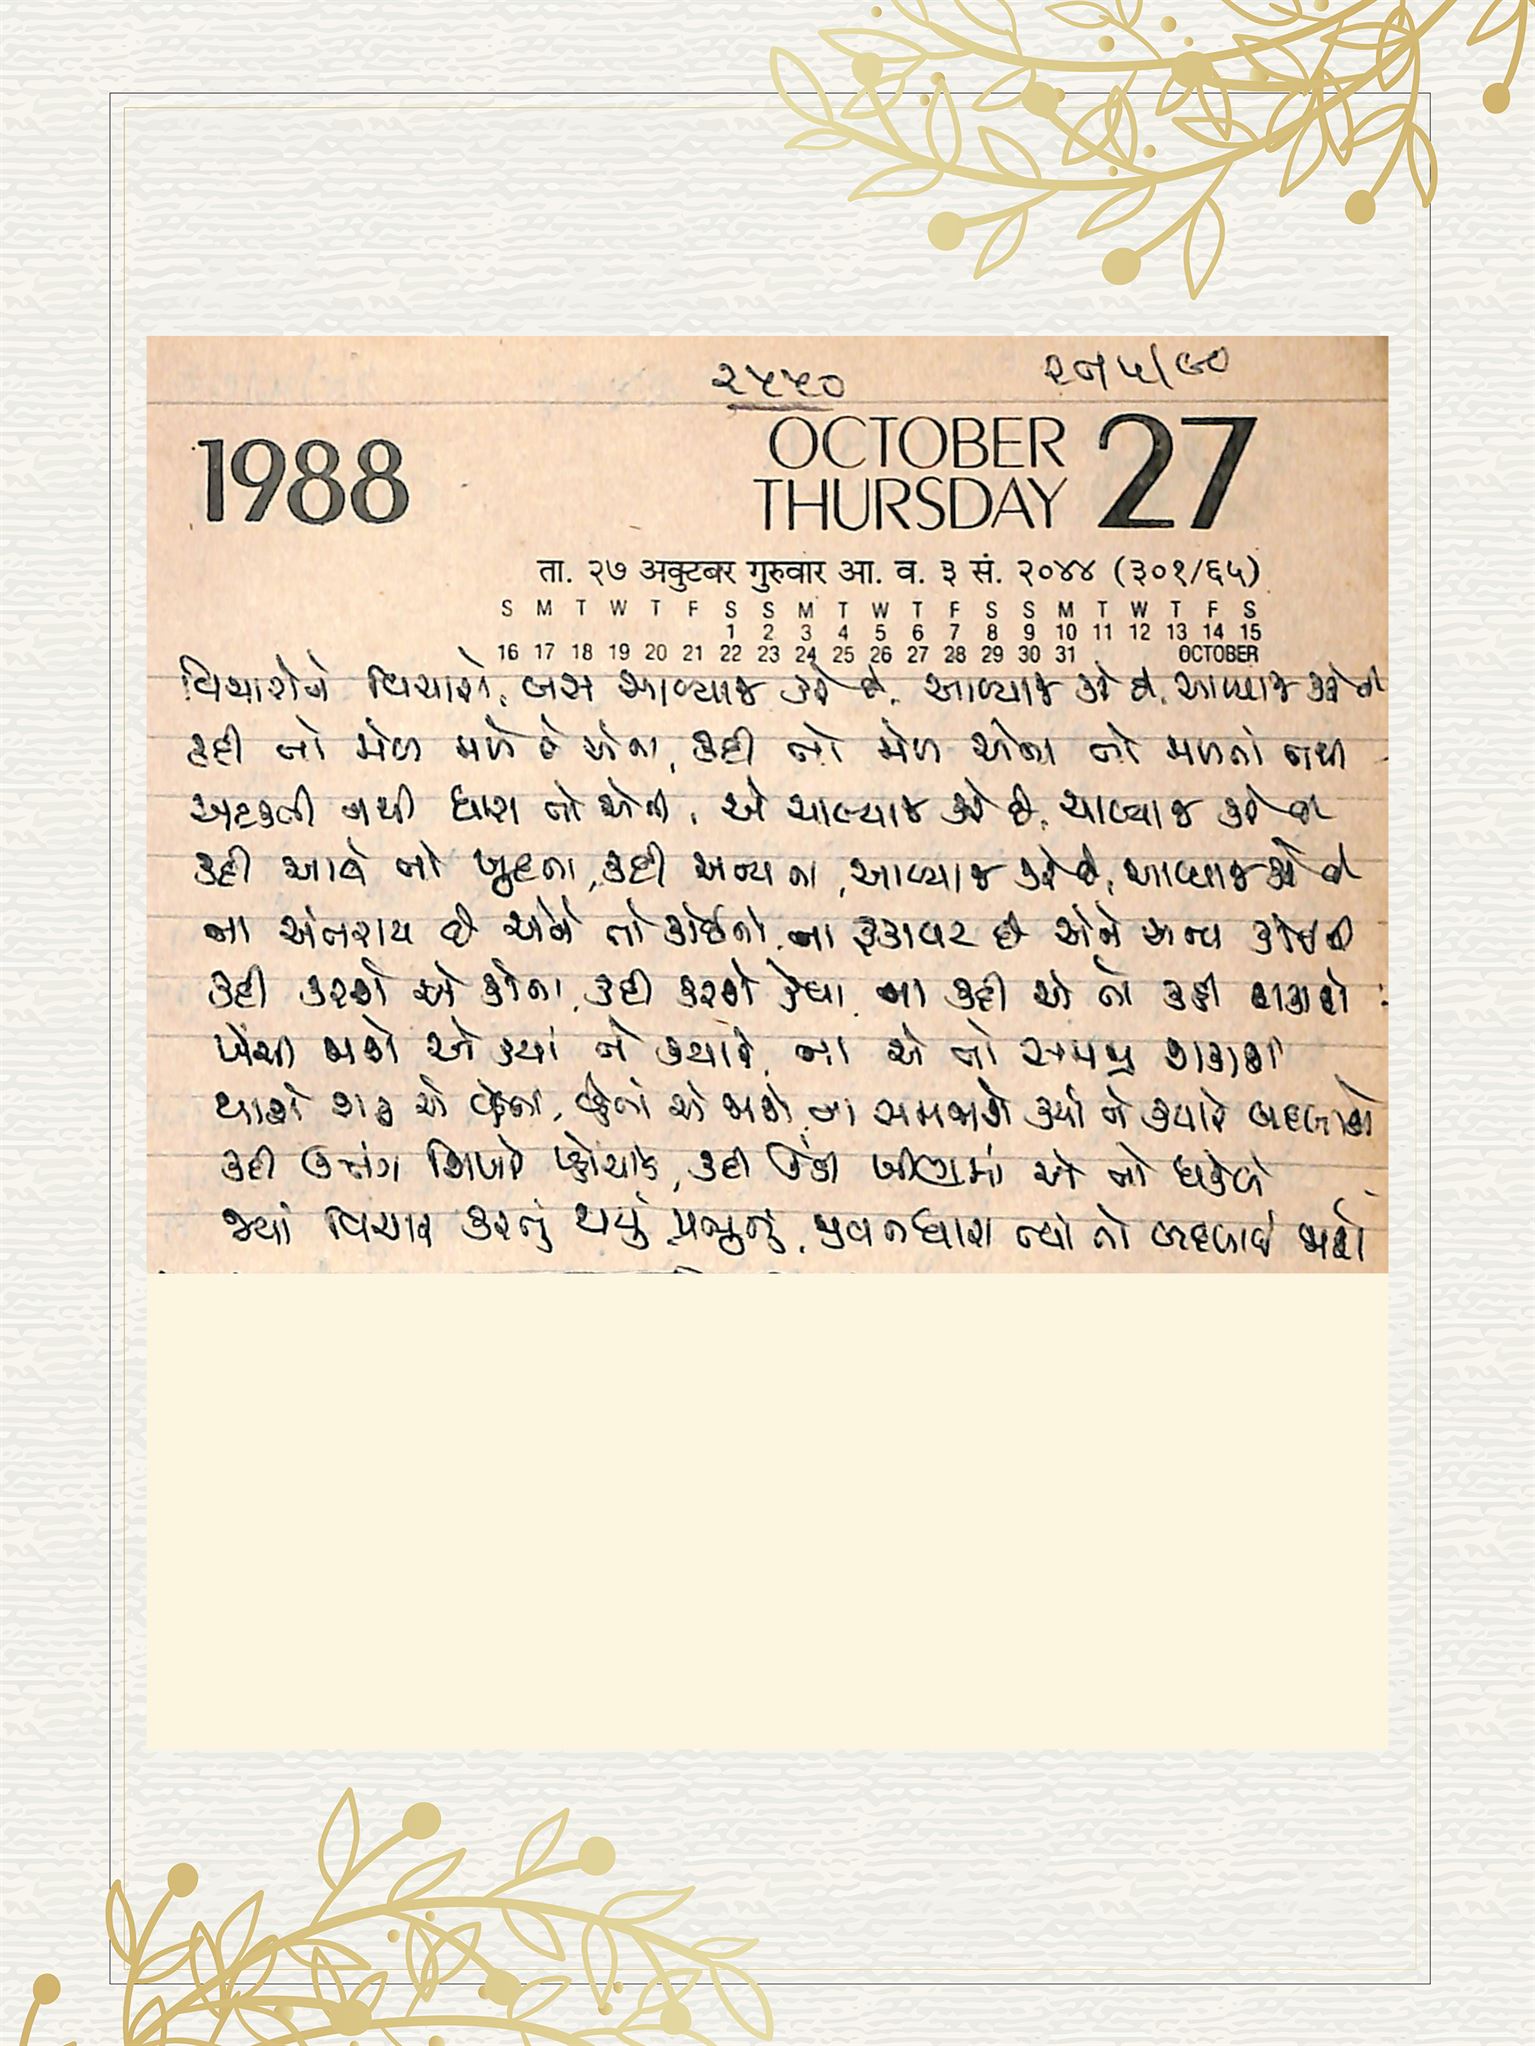 ૨૫૫૦
1988
OCTOBER 27
THURSDAY
ता. २७ अक्टुबर गुरुवार आ. व. ३ सं. २०४४ (३०१/६५)
S M T W T F S S M T W T F S S M T W T F S
1 2 3 4 5 6 7 8 9 10 11 12 13 14 15
16 17 18 19 20 21 22 23 24 25 26 27 28 29 30 31 OCTOBER
વિચારોને વિચારો, બસ આવ્યાજ કરે છે, આવ્યાજ કરે છે, આવ્યાજ કરે છે
કદી તો મેળ મળે છે એના, કદી તો મેળ એના તો મળતાં નથી
અટકતી નથી ધારા તો એની, એ ચાલ્યાજ કરે છે, ચાલ્યાજ કરે છે
કદી આવે તો ખુદના, કદી અન્યના, આવ્યાજ કરે છે, આવ્યાજ કરે છે
ના અંતરાય છે એને તો કોઈનો, ના રૂકાવટ છે એને અન્ય કોઈની
કદી કરશે એ કોના, કદી કરશે કેવા, ના કદી એ તો કહી શકાશે
ખેંચી જાશે એ ક્યાં ને ક્યારે, ના એ તો સમજી શકાશે
થાશે શરૂ એ જેના, જેનો એ જાશે, ના સમજાશે ક્યાં ને ક્યારે બદલાશે
કદી ઉત્તંગ શિખરે પ્હોંચાડે, કદી ઊંડી ખીણમાં એ તો ધકેલે
જ્યાં વિચાર કરતું થયું પ્રભુનું, જીવનધારા ત્યાં તો બદલાઈ જાશે